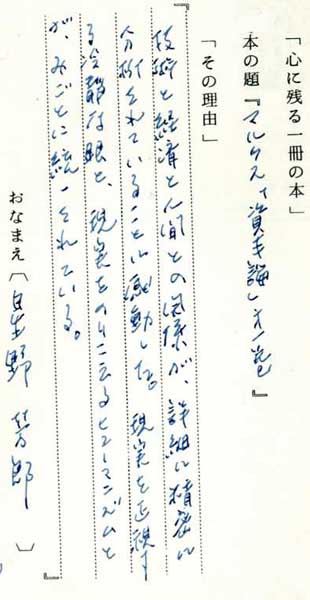 「心に残る一冊の本」
本の題『マルクス「資本論」オ一巻』
「その理由」
技術と経済と人間との関係が、詳細に精密に
分析されていることに感動した。現実を正視す
る冷静な眼と、現実をのりこえるヒューマニズムと
が、みごとに統一されている。
おなまえ〔星野 芳郎〕